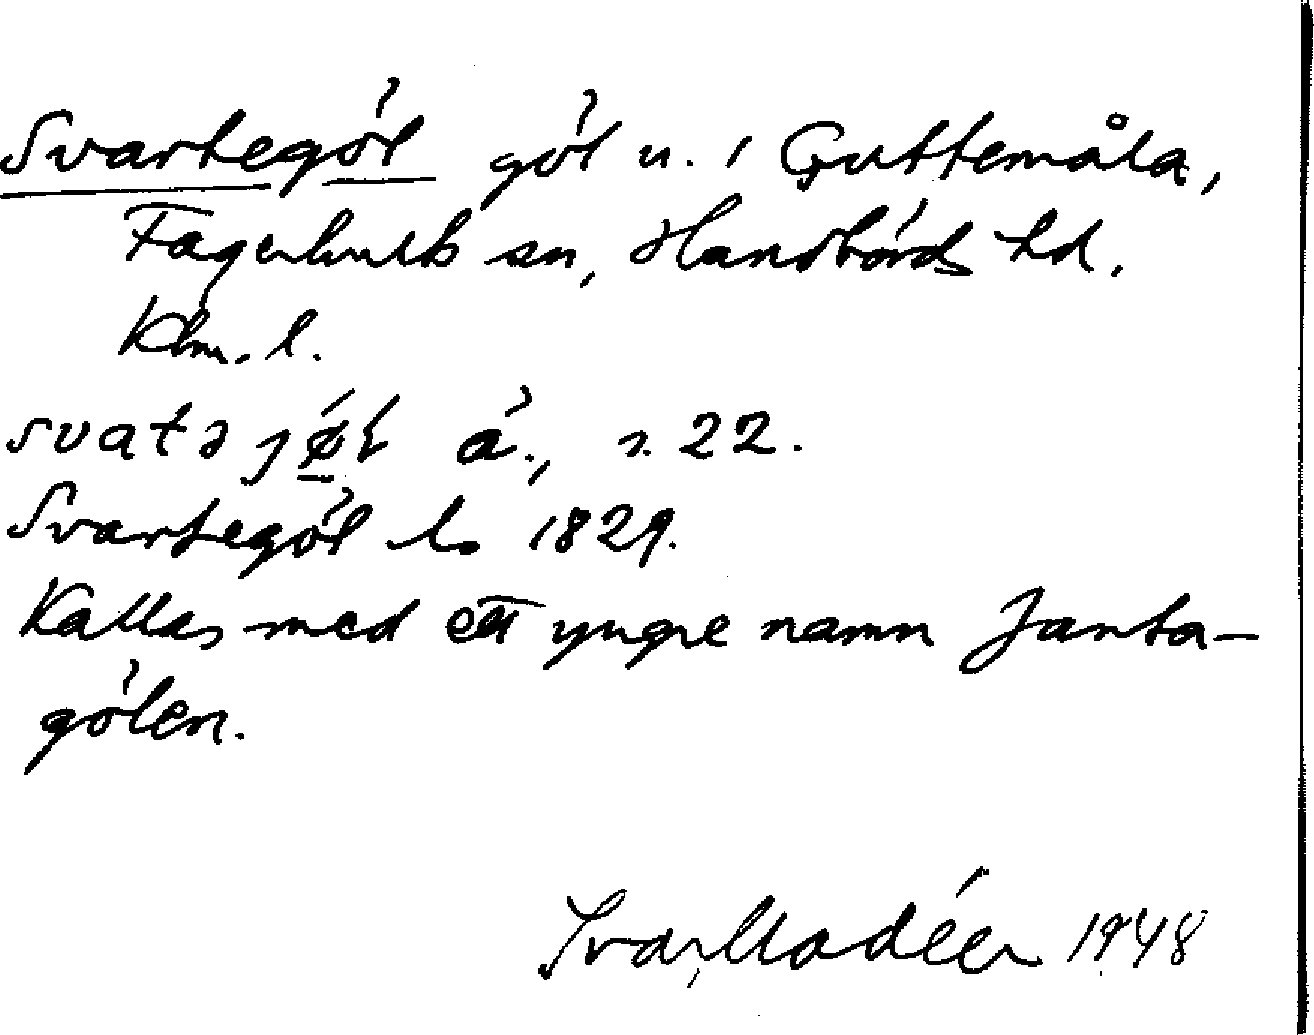 Svartegöl göl n. i Guttemåla,
Fagerhults sn, Handbörds hd.
Klm. l.
svatə jøl a., s. 22.
Svartegöl l. 1829.
Kallas med ett yngre namn Janta-
gölen.
Ivar Modéer 1948